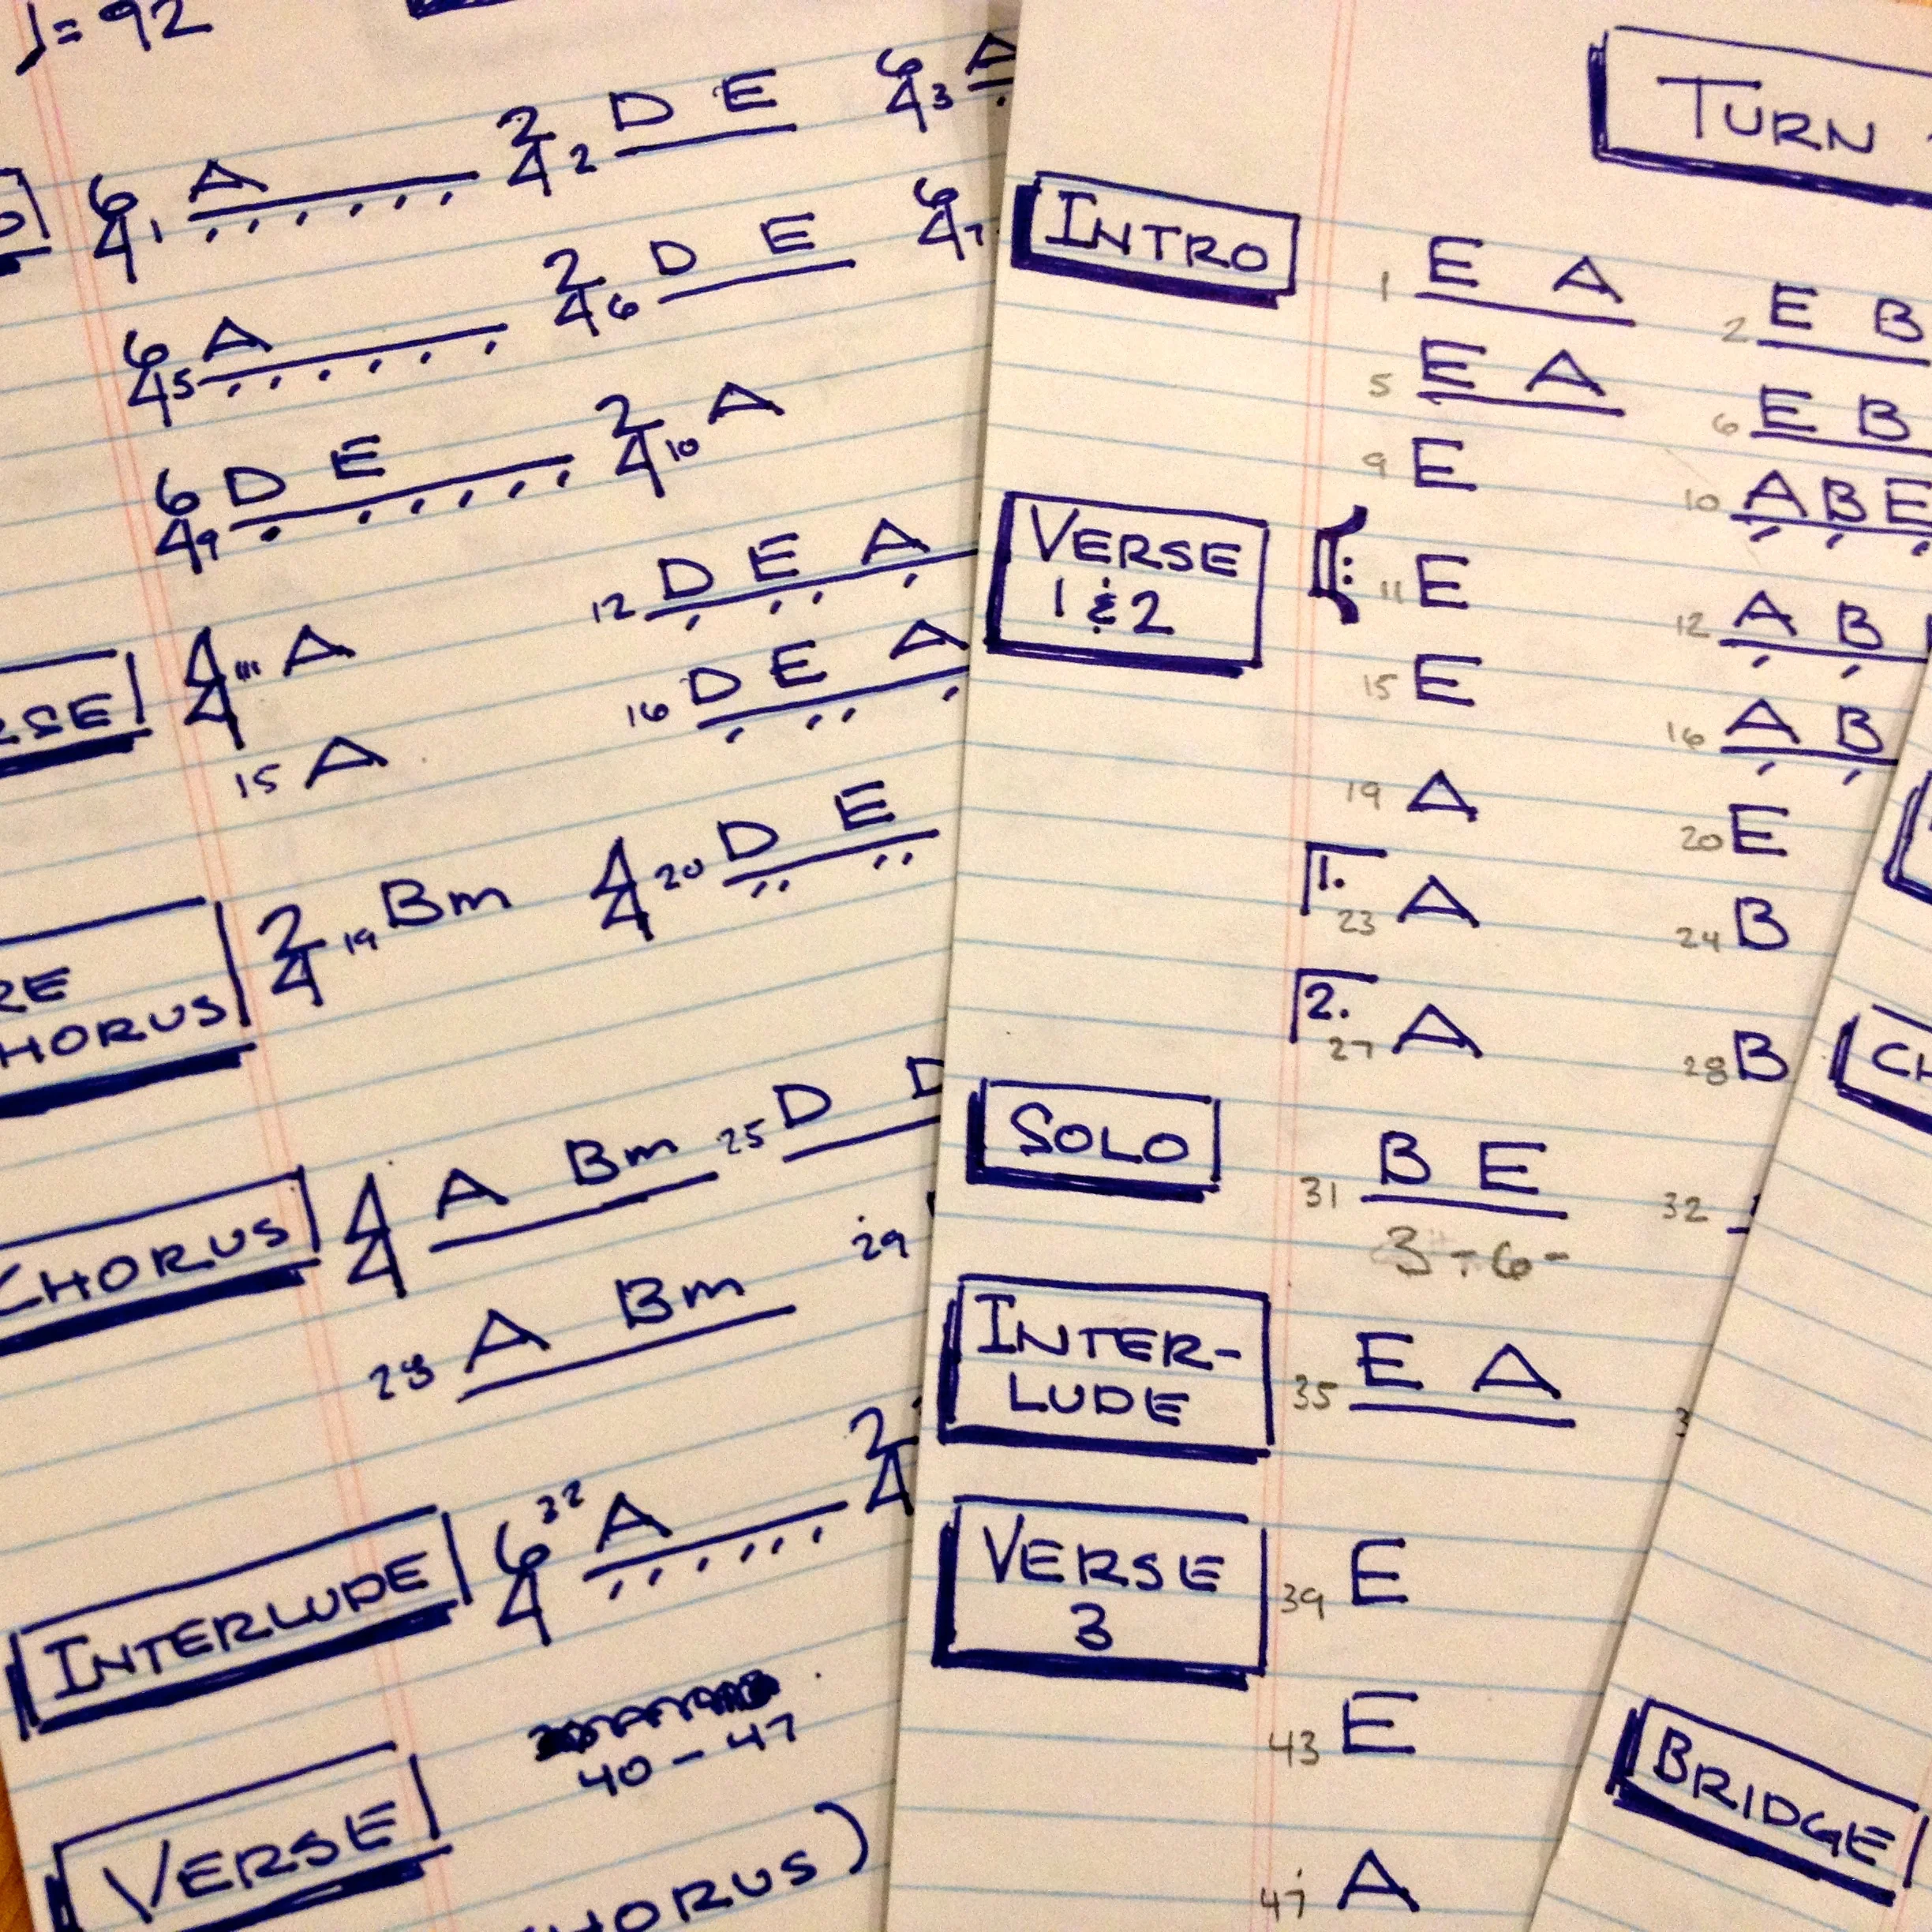 ♩= 92
6/4 1 A 2/4 2 D E 6/4 3 A
6/4 5 A 2/4 6 D E 6/4 7
6/4 9 D E 2/4 10 A
4/4 11 A 12 D E A
15 A 16 D E A
2/4 19 Bm 4/4 20 D E
CHORUS 4/4 A Bm 25 D D
28 A Bm 29
INTERLUDE 6/4 32 A 2/4
40 - 47
VERSE
TURN
INTRO 1 E A 2 E B
5 E A 6 E B
9 E 10 A B E
VERSE
1 & 2
11 E 12 A B
15 E 16 A B
19 A 20 E
1. 23 A 24 B
2. 27 A 28 B
SOLO 31 B E 32
3- 6-
INTER-
LUDE
35 E A
VERSE
3
39 E
43 E
47 A
BRIDGE